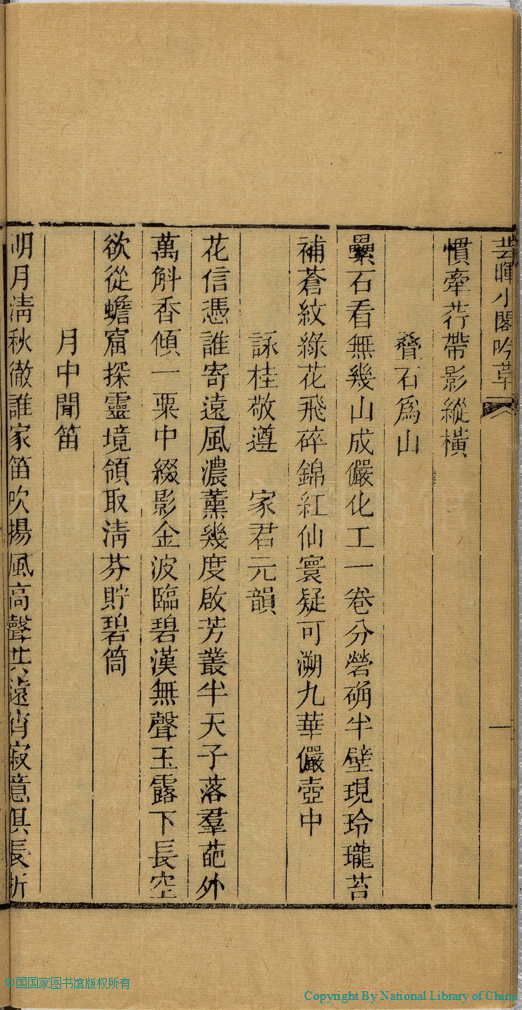 芸暉小閣吟草
一
慣牽荇帶影縱橫
疊石為山
纍石看無幾山成儼化工一卷分犖确半壁現玲瓏苔
補蒼紋綠花飛碎錦紅仙寰疑可溯九華儼壺中
詠桂敬遵 家君元韻
花信憑誰寄遠風濃薰幾度啟芳叢半天子落羣葩外
萬斛香傾一粟中綴影金波臨碧漢無聲玉露下長空
欲從蟾窟探靈境領取清芬貯碧筒
月中聞笛
明月清秋徹誰家笛吹揚風高聲共遠宵寂意俱長折
中国国家图书馆版权所有
Copyright By National Library of China